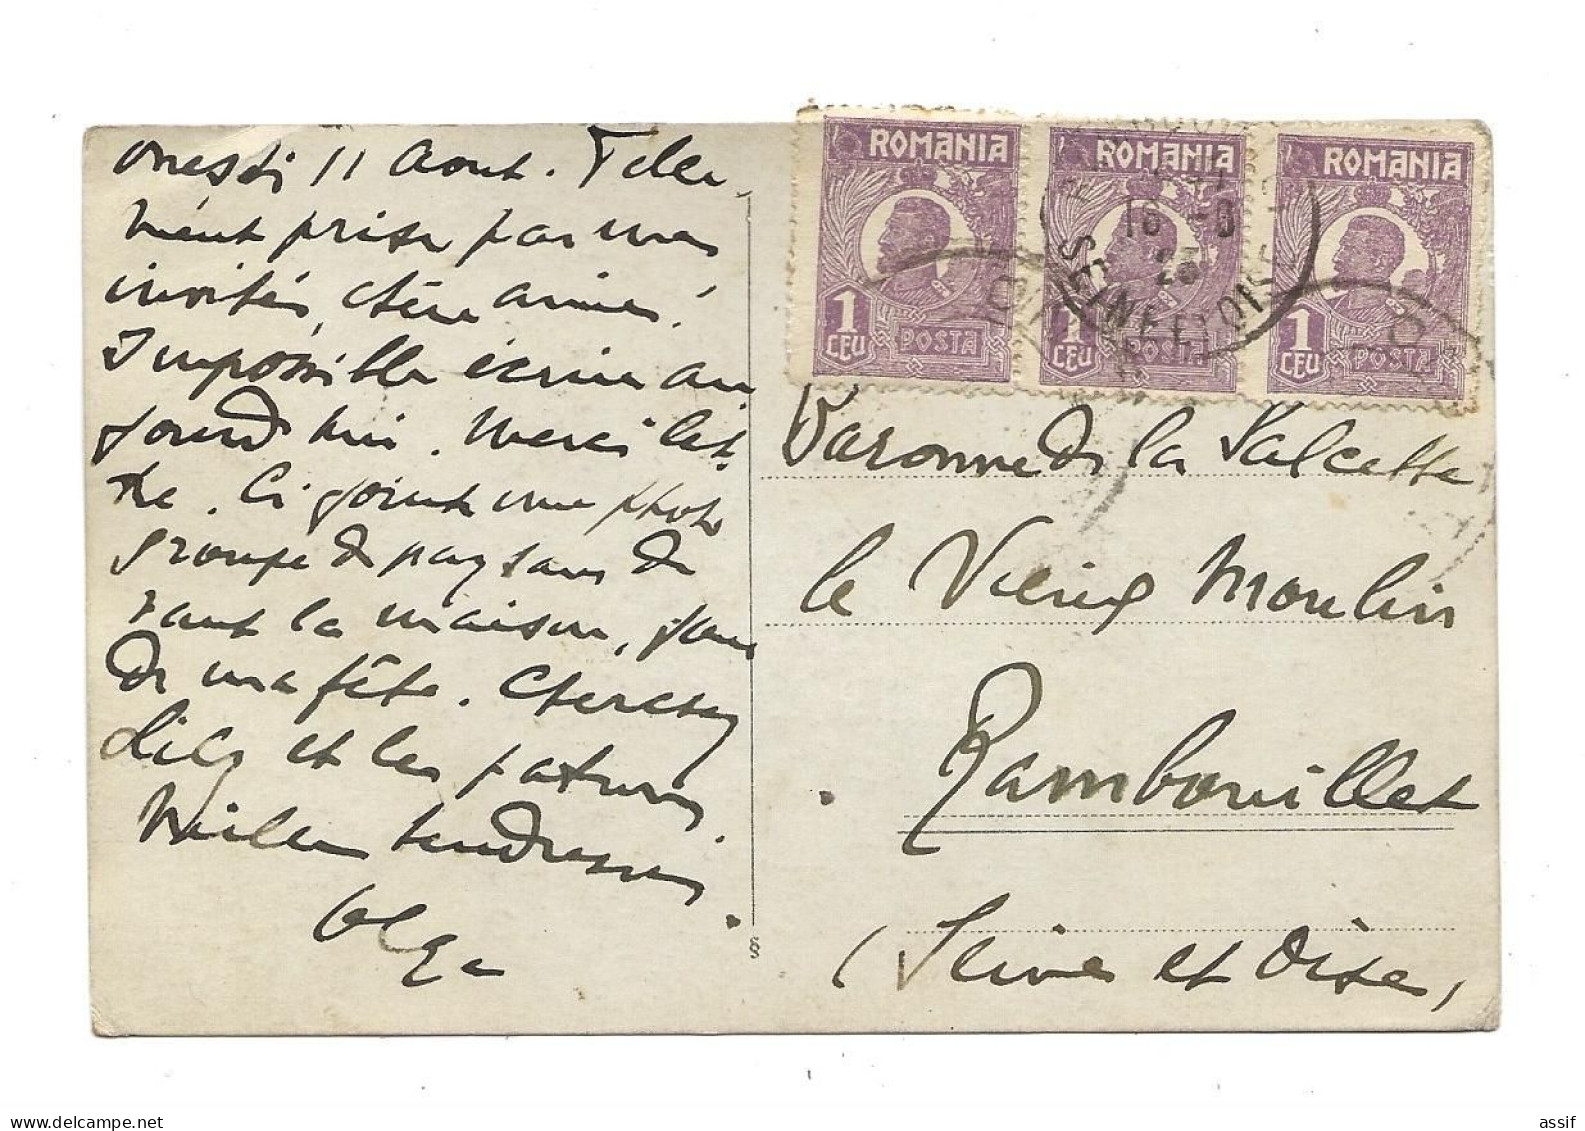 Onesti 11 Aout. Telle
ment prise par mes
invités, chère amie,
Impossible écrire au
jourd'hui. Merci let
tre. Ci joint une photo
groupe de paysans de
vant la maison, jour
de ma fête. Cherchez
Lily et les
Milles tendresses.
Olga
§
ROMANIA
1
LEU
POSTA
ROMANIA
1
LEU
POSTA
ROMANIA
1
LEU
POSTA
16 - 8
23
SEINE ET OISE
Baronne de la Valcette
le Vieux Moulin
Rambouillet
(Seine et Oise)
delcampe.net
assif